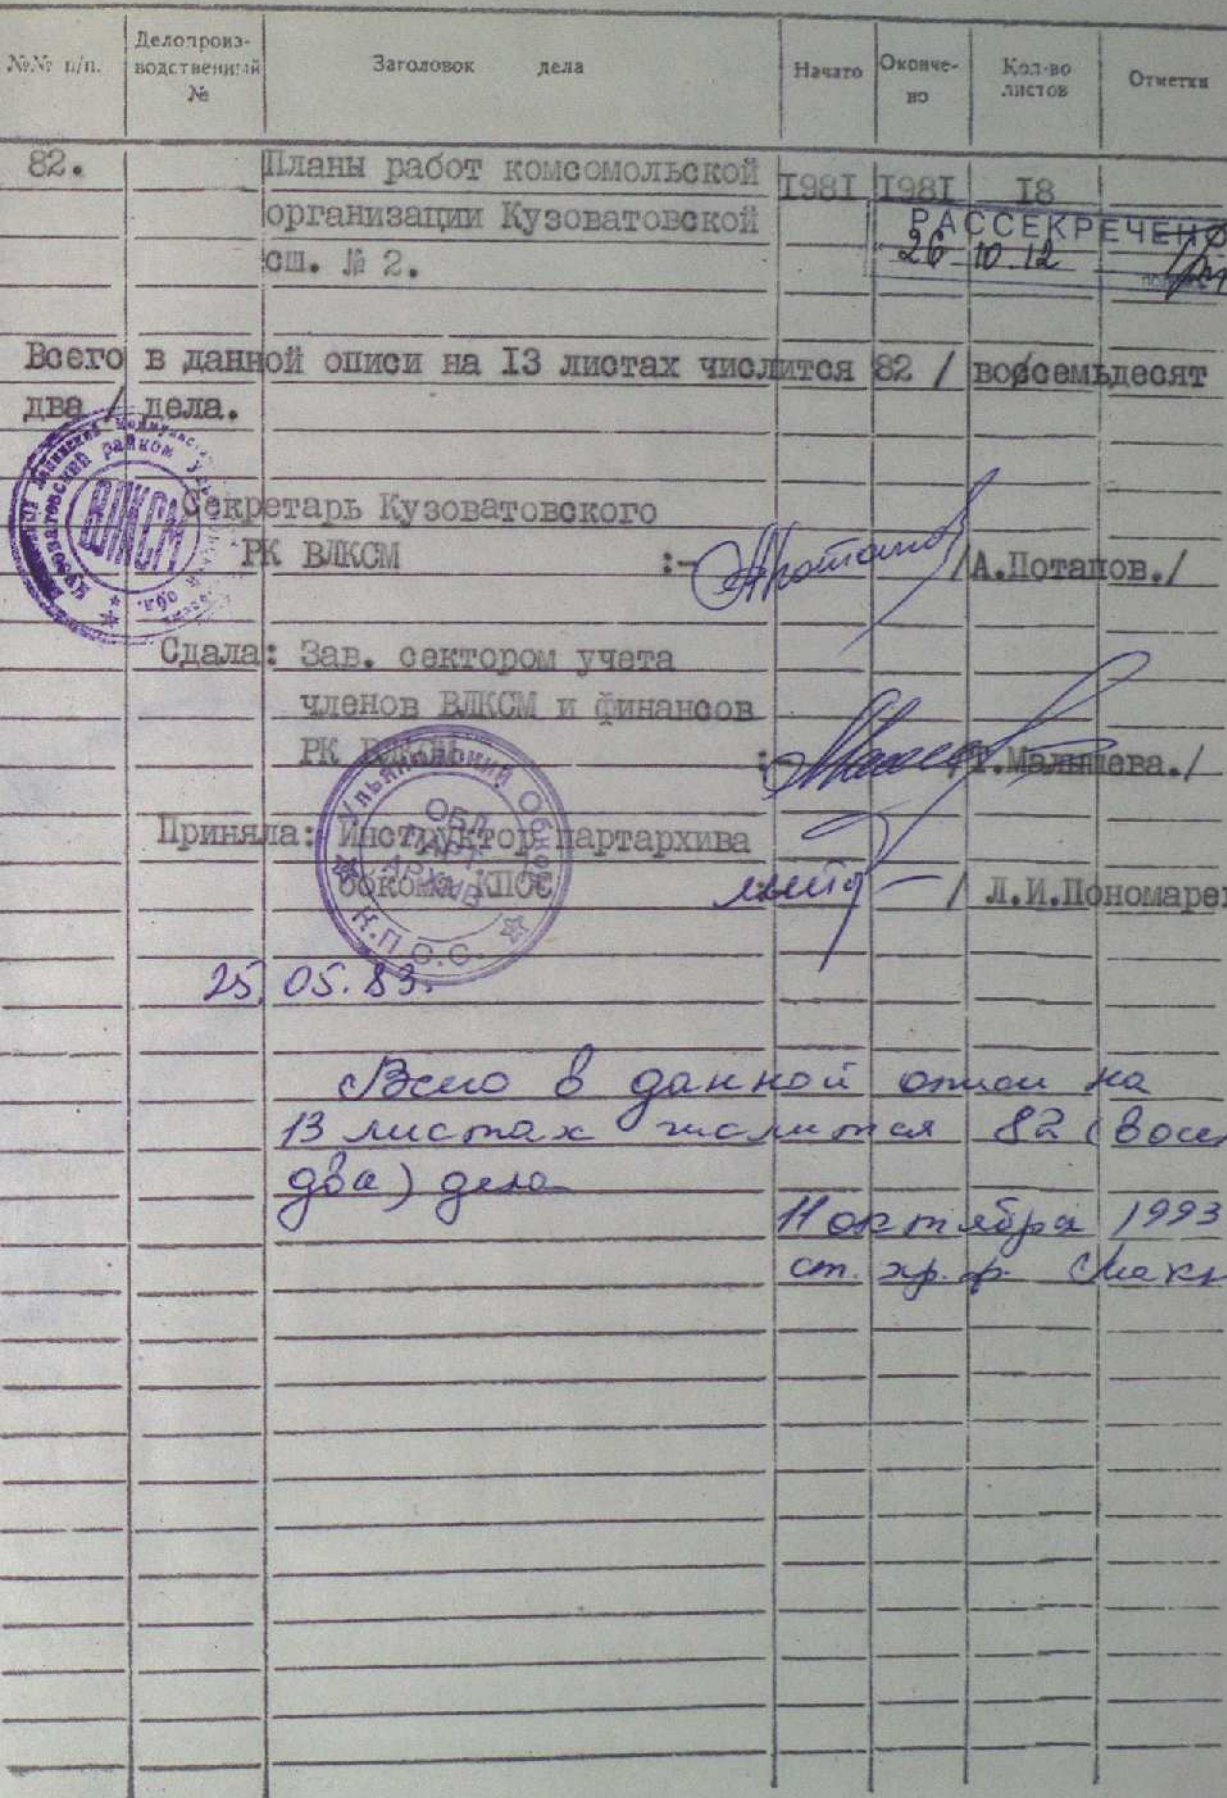 №№ п/п. Делопроиз-водственный № Заголовок дела Начато Окончено Кол-во листов Отметки
82. Планы работ комсомольской 1981 1981 18
организации Кузоватовской
сш. № 2.
РАССЕКРЕЧЕНО
26 10 12
Всего в данной описи на 13 листах числится 82 / восемьдесят
два / дела.
Кузоватовский райком
ВЛКСМ
Секретарь Кузоватовского
РК ВЛКСМ :- /А.Потапов./
Сдала: Зав. сектором учета
членов ВЛКСМ и финансов
РК ВЛКСМ :- /Т.Малышева./
Ульяновский Обком
ОБЛ
ПАРТ
АРХИВ
К.П.С.С.
Приняла: Инструктор партархива
обкома КПСС / Л.И.Пономарев
25.05.83.
Всего в данной описи на
13 листах числится 82 (восем
два) дела
11 октября 1993
ст. хр. ф.